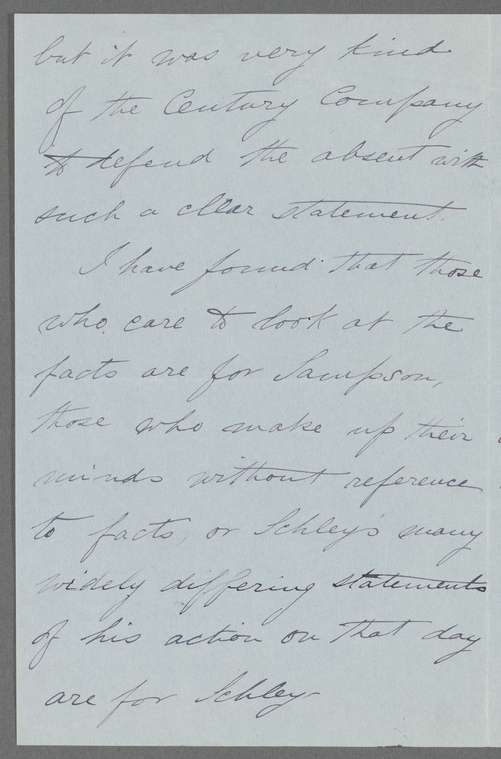 but it was very kind
of the Century Company
to defend the absent with
such a clear statement.
I have found that those
who care to look at the
facts are for Sampson,
those who make up their
minds without reference
to facts, or Schley's many
widely differing statements
of his action on that day
are for Schley